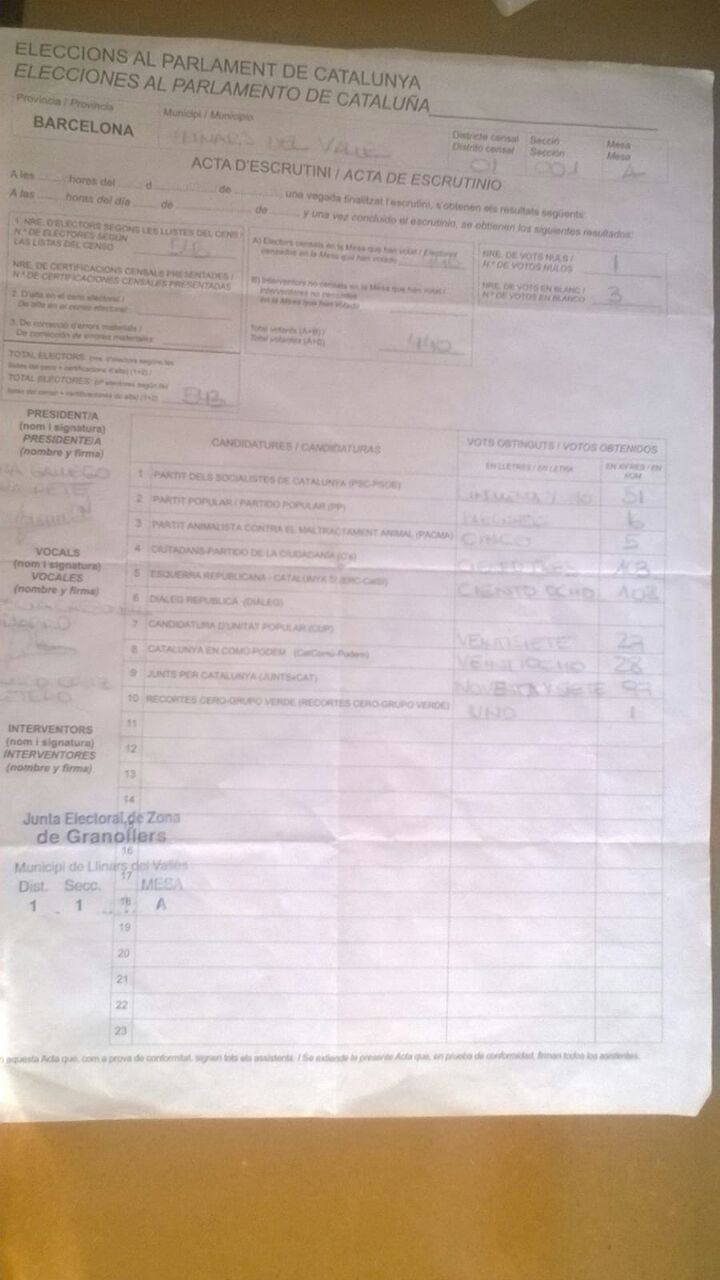 ELECCIONS AL PARLAMENT DE CATALUNYA
ELECCIONES AL PARLAMENTO DE CATALUÑA
Província / Provincia
BARCELONA
Municipi / Municipio
LLINARS DEL VALLÈS
Districte censal
Distrito censal
01
Secció
Sección
001
Mesa
Mesa
A
ACTA D'ESCRUTINI / ACTA DE ESCRUTINIO
A les ........ hores del ........ d ................ de ............, una vegada finalitzat l'escrutini, s'obtenen els resultats següents:
A las ........ horas del día ........ de ................ de ........ y una vez concluido el escrutinio, se obtienen los siguientes resultados:
1. NRE. D'ELECTORS SEGONS LES LLISTES DEL CENS /
N.º DE ELECTORES SEGÚN
LAS LISTAS DEL CENSO
NRE. DE CERTIFICACIONS CENSALS PRESENTADES /
N.º DE CERTIFICACIONES CENSALES PRESENTADAS
2. D'alta en el cens electoral /
De alta en el censo electoral:
3. De correcció d'errors materials /
De corrección de errores materiales:
TOTAL ELECTORS: (nre. d'electors segons les
llistes del cens + certificacions d'alta) (1+2) /
TOTAL ELECTORES: (nº electores según las
listas del censo + certificaciones de alta) (1+2)
A) Electors censats en la Mesa que han votat / Electores
censados en la Mesa que han votado
B) Interventors no censats en la Mesa que han votat /
Interventores no censados
en la Mesa que han votado
Total votants (A+B) /
Total votantes (A+B)
440
NRE. DE VOTS NULS /
N.º DE VOTOS NULOS
1
NRE. DE VOTS EN BLANC /
N.º DE VOTOS EN BLANCO
3
PRESIDENT/A
(nom i signatura)
PRESIDENTE/A
(nombre y firma)
GALLEGO
CANDIDATURES / CANDIDATURAS
VOTS OBTINGUTS / VOTOS OBTENIDOS
EN LLETRES / EN LETRA
EN XIFRES / EN NÚM.
1 PARTIT DELS SOCIALISTES DE CATALUNYA (PSC-PSOE) 51
2 PARTIT POPULAR / PARTIDO POPULAR (PP) 6
3 PARTIT ANIMALISTA CONTRA EL MALTRACTAMENT ANIMAL (PACMA) CINCO 5
4 CIUTADANS-PARTIDO DE LA CIUDADANÍA (C's) 113
5 ESQUERRA REPUBLICANA - CATALUNYA SÍ (ERC-CatSí) CIENTO OCHO 108
6 DIÀLEG REPUBLICÀ (DIÀLEG)
7 CANDIDATURA D'UNITAT POPULAR (CUP) VENTISIETE 27
8 CATALUNYA EN COMÚ-PODEM (CatComú-Podem) VEINTIOCHO 28
9 JUNTS PER CATALUNYA (JUNTSxCAT) NOVENTA Y SIETE 97
10 RECORTES CERO-GRUPO VERDE (RECORTES CERO-GRUPO VERDE) UNO 1
11
12
13
14
16
17
18
19
20
21
22
23
VOCALS
(nom i signatura)
VOCALES
(nombre y firma)
INTERVENTORS
(nom i signatura)
INTERVENTORES
(nombre y firma)
Junta Electoral de Zona
de Granollers
Municipi de Llinars del Vallès
Dist. Secc. MESA
1 1 A
aquesta Acta que, com a prova de conformitat, signen tots els assistents. / Se extiende la presente Acta que, en prueba de conformidad, firman todos los asistentes.